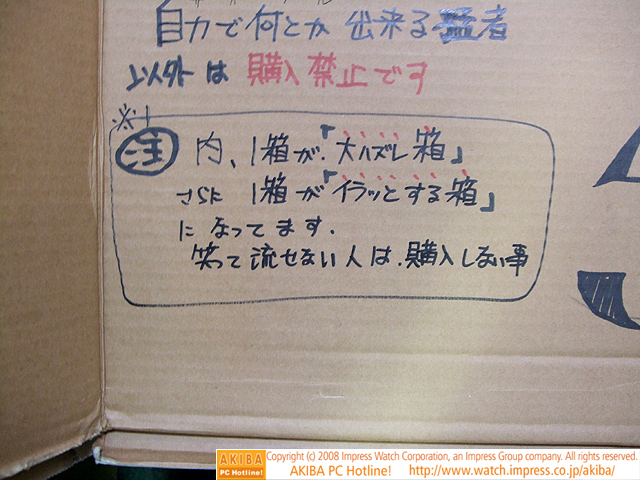 自力で何とか出来る猛者
以外は 購入禁止です
※1
注 内、1箱が「大ハズレ箱」
さらに 1箱が「イラッとする箱」
になってます.
笑って流せない人は、購入しない事
AKIBA PC Hotline!
Copyright (c) 2008 Impress Watch Corporation, an Impress Group company. All rights reserved.
AKIBA PC Hotline! http://www.watch.impress.co.jp/akiba/